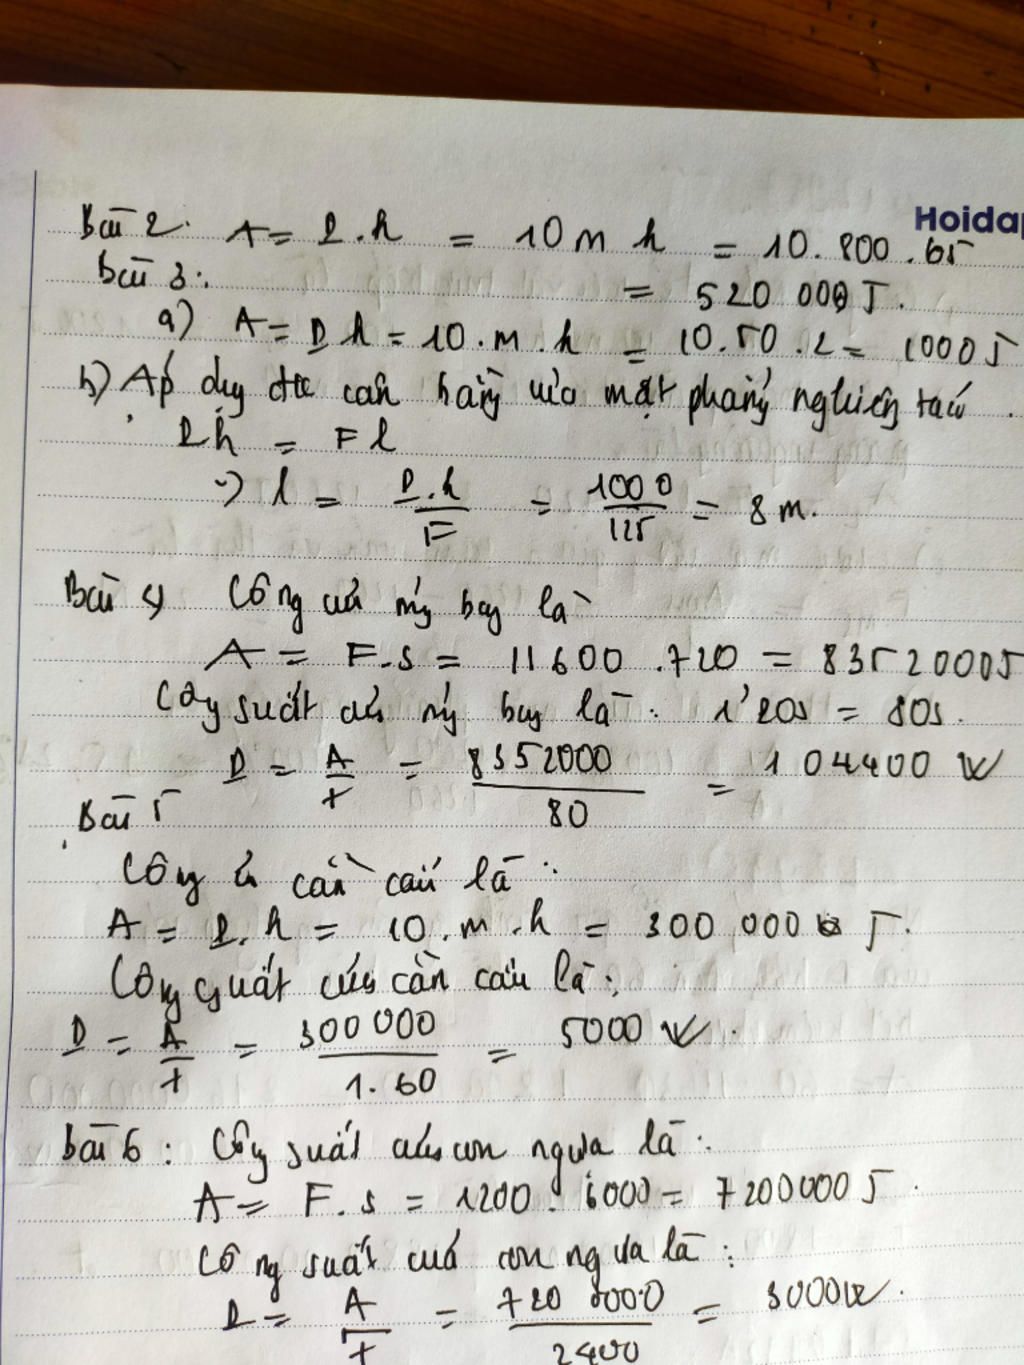 Hoidap
Bài 2. A = P.h = 10 m h = 10.800.65
Bài 3: = 520 000 J.
a) A = P h = 10.m.h = 10.50.2 = 1000 J
b) Áp dụng đk cân bằng của mặt phẳng nghiêng ta có.
P h = F l
=> l = P.h / F = 1000 / 125 = 8 m.
Bài 4) Công của máy bay là
A = F.s = 11600.720 = 8352000 J
Công suất của máy bay là: 1'20s = 80s.
P = A / t = 8352000 / 80 = 104400 W
Bài 5
Công của cần cẩu là:
A = P.h = 10.m.h = 300 000 J.
Công suất của cần cẩu là:
P = A / t = 300 000 / 1.60 = 5000 W.
Bài 6: Công suất của con ngựa là:
A = F.s = 1200.6000 = 7200000 J.
Công suất của con ngựa là:
P = A / t = 720 0000 / 2400 = 3000 W.